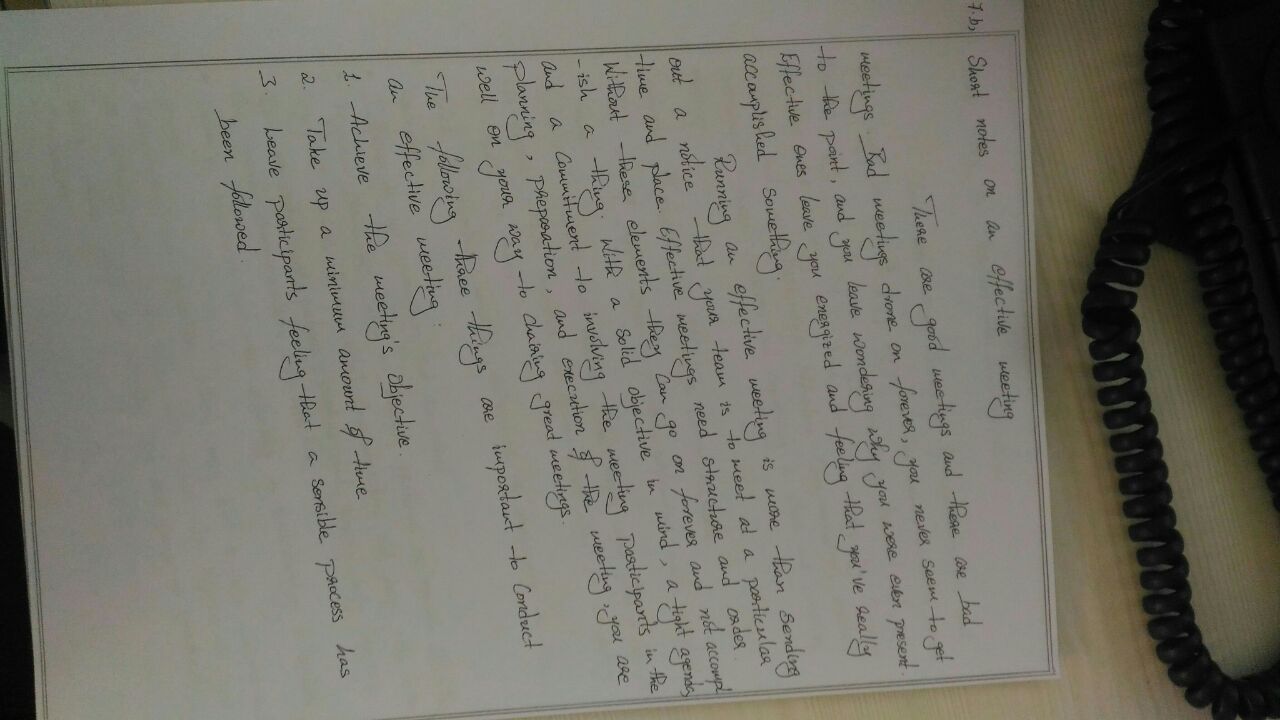 7.b, Short notes on an effective meeting
There are good meetings and there are bad
meetings. Bad meetings drone on forever, you never seem to get
to the point, and you leave wondering why you were even present.
Effective ones leave you energized and feeling that you've really
accomplished something.
Running an effective meeting is more than sending
out a notice that your team is to meet at a particular
time and place. Effective meetings need structure and order.
Without these elements they can go on forever and not accompl
-ish a thing. With a solid objective in mind, a tight agenda,
and a commitment to involving the meeting participants in the
planning, preparation, and execution of the meeting, you are
well on your way to chairing great meetings.
The following three things are important to conduct
an effective meeting.
1. Achieve the meeting's objective.
2. Take up a minimum amount of time
3. Leave participants feeling that a sensible process has
been followed.